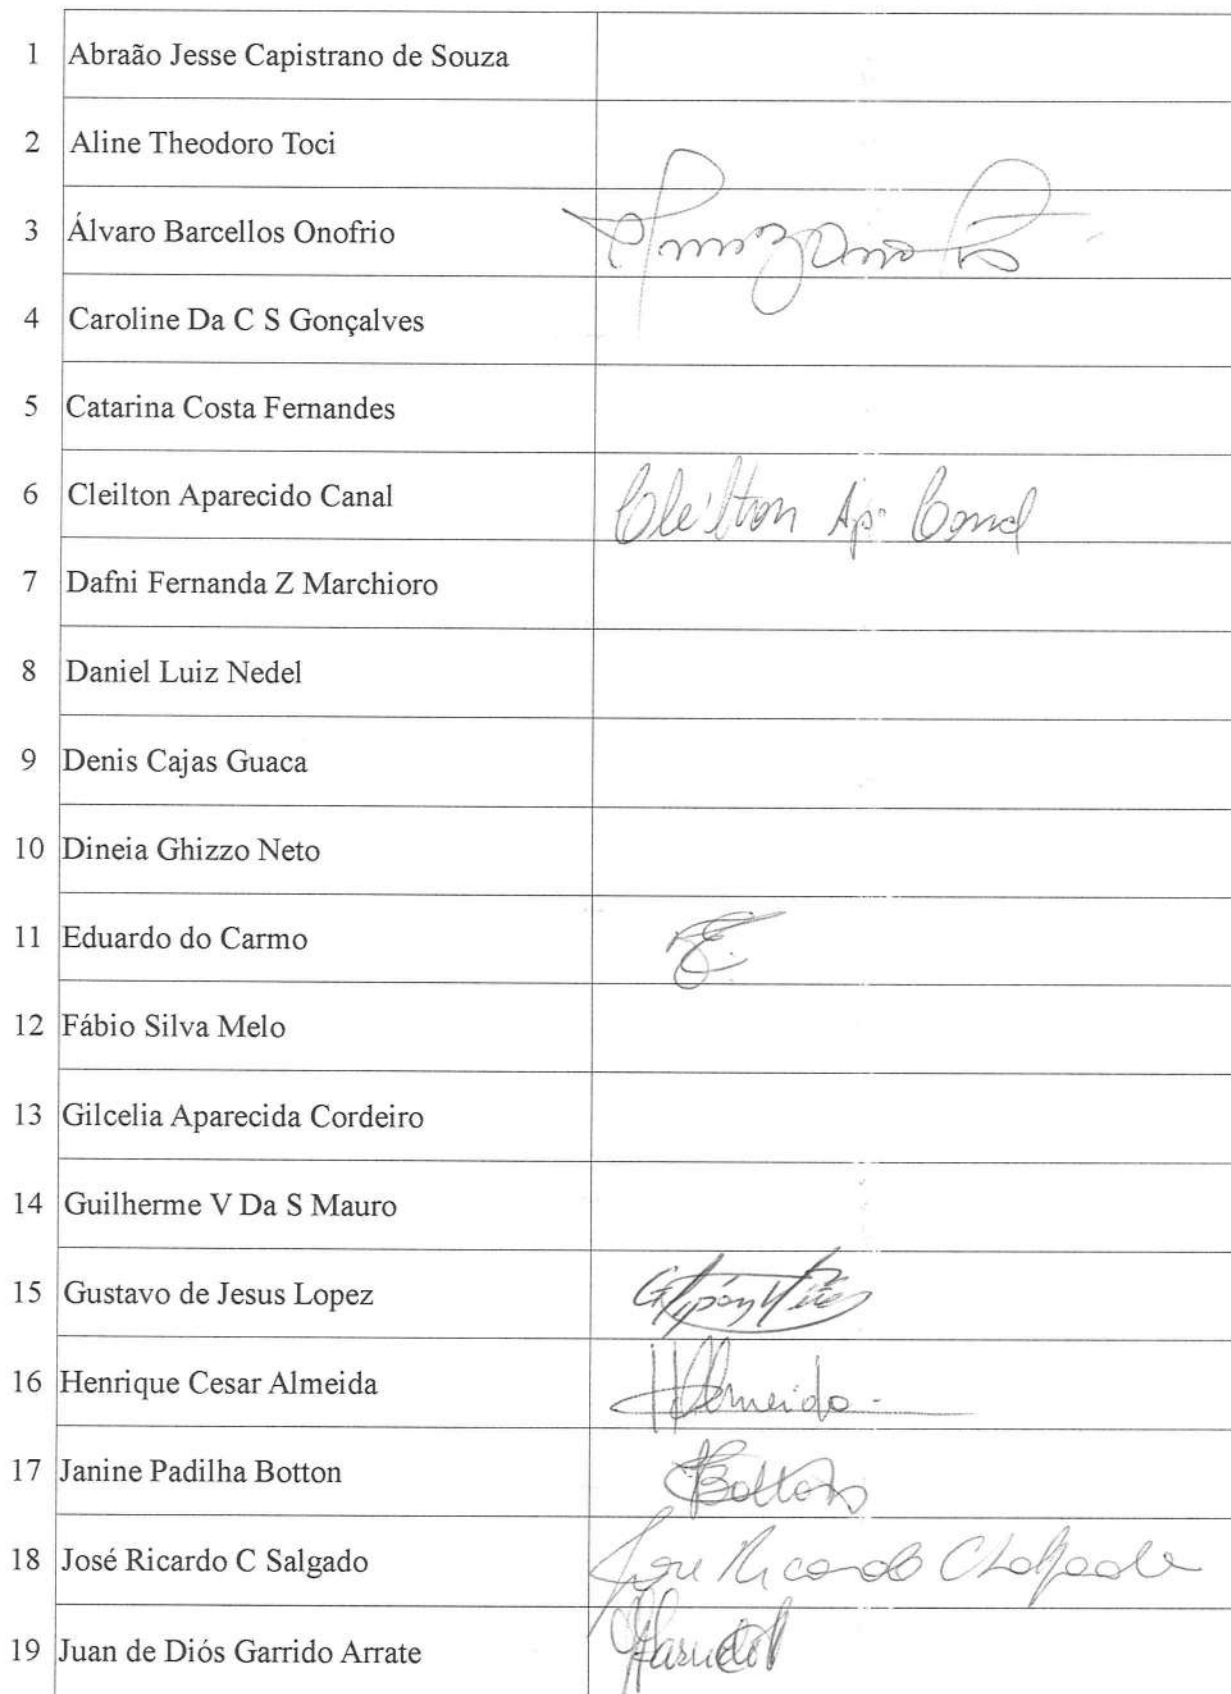 1 Abraão Jesse Capistrano de Souza
2 Aline Theodoro Toci
3 Álvaro Barcellos Onofrio
4 Caroline Da C S Gonçalves
5 Catarina Costa Fernandes
6 Cleilton Aparecido Canal Cleilton Ap. Canal
7 Dafni Fernanda Z Marchioro
8 Daniel Luiz Nedel
9 Denis Cajas Guaca
10 Dineia Ghizzo Neto
11 Eduardo do Carmo
12 Fábio Silva Melo
13 Gilcelia Aparecida Cordeiro
14 Guilherme V Da S Mauro
15 Gustavo de Jesus Lopez
16 Henrique Cesar Almeida HAlmeida
17 Janine Padilha Botton Botton
18 José Ricardo C Salgado José Ricardo C Salgado
19 Juan de Diós Garrido Arrate